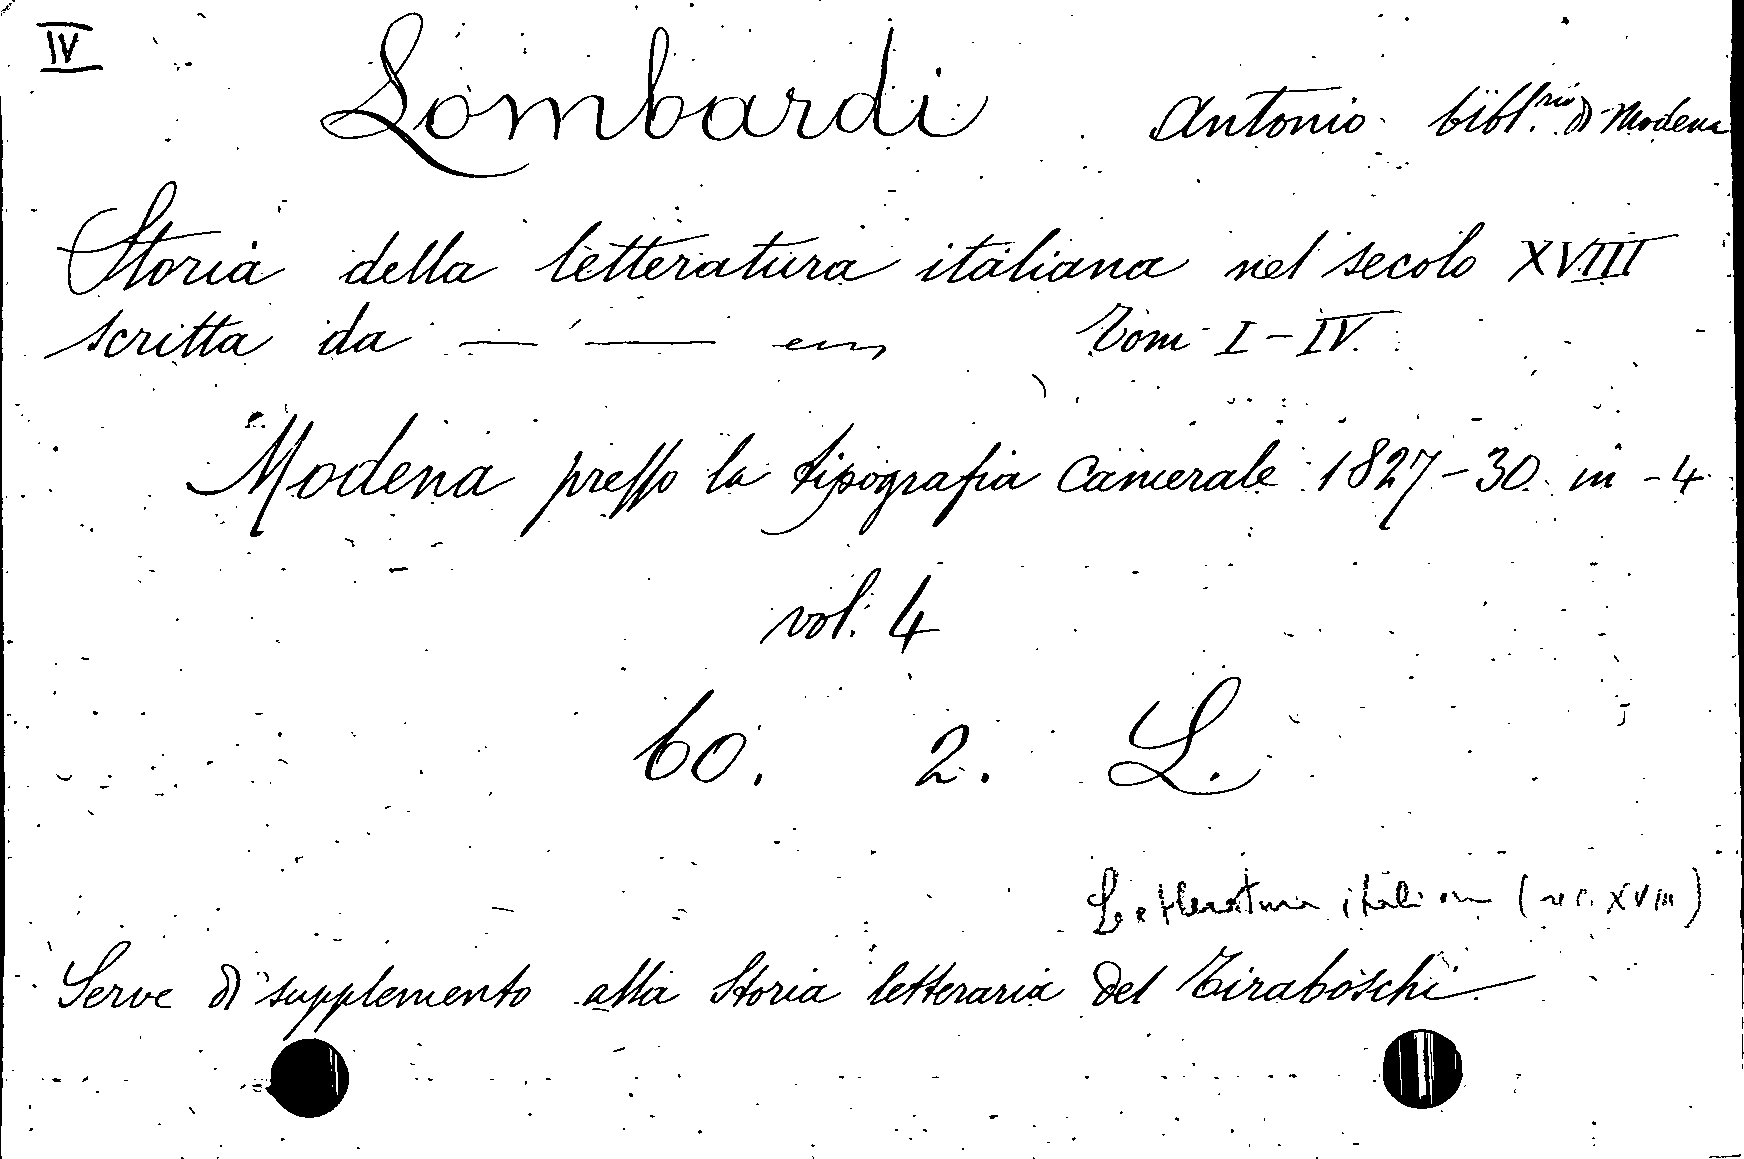 IV
Lombardi Antonio bibl.rio di Modena
Storia della letteratura italiana nel secolo XVIII
scritta da — — ecc, Tom I-IV.
Modena presso la tipografia Camerale 1827-30. in-4
vol. 4
60. 2. L.
Letteratura italiana (sec. XVIII)
Serve di supplemento alla Storia letteraria del Tiraboschi.